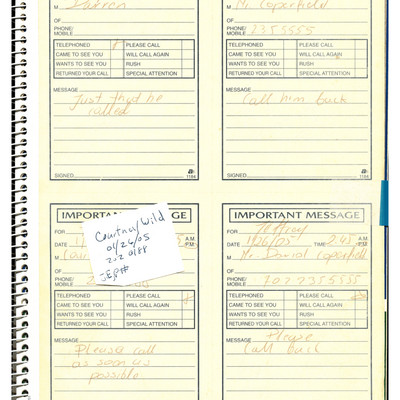 M Darren
M Mr Coperfield
OF
OF
PHONE/
MOBILE
PHONE/
MOBILE 2355555
TELEPHONED PLEASE CALL
CAME TO SEE YOU WILL CALL AGAIN
WANTS TO SEE YOU RUSH
RETURNED YOUR CALL SPECIAL ATTENTION
TELEPHONED PLEASE CALL
CAME TO SEE YOU WILL CALL AGAIN
WANTS TO SEE YOU RUSH
RETURNED YOUR CALL SPECIAL ATTENTION
MESSAGE
Just that he
called
MESSAGE
Call him back
SIGNED 1184
SIGNED 1184
IMPORTANT MESSAGE
FOR
DATE A.M.
P.M.
M
OF
PHONE/
MOBILE
Courtney Wild
01/26/05
TELEPHONED PLEASE CALL
CAME TO SEE YOU WILL CALL AGAIN
WANTS TO SEE YOU RUSH
RETURNED YOUR CALL SPECIAL ATTENTION
MESSAGE
Please call
as soon as
possible
IMPORTANT MESSAGE
FOR Jeffrey
DATE 1/26/05 TIME 2:45 A.M.
P.M.
M Mr. David Coperfield
OF
PHONE/
MOBILE 702 235 5555
TELEPHONED PLEASE CALL
CAME TO SEE YOU WILL CALL AGAIN
WANTS TO SEE YOU RUSH
RETURNED YOUR CALL SPECIAL ATTENTION
MESSAGE Please
Call back